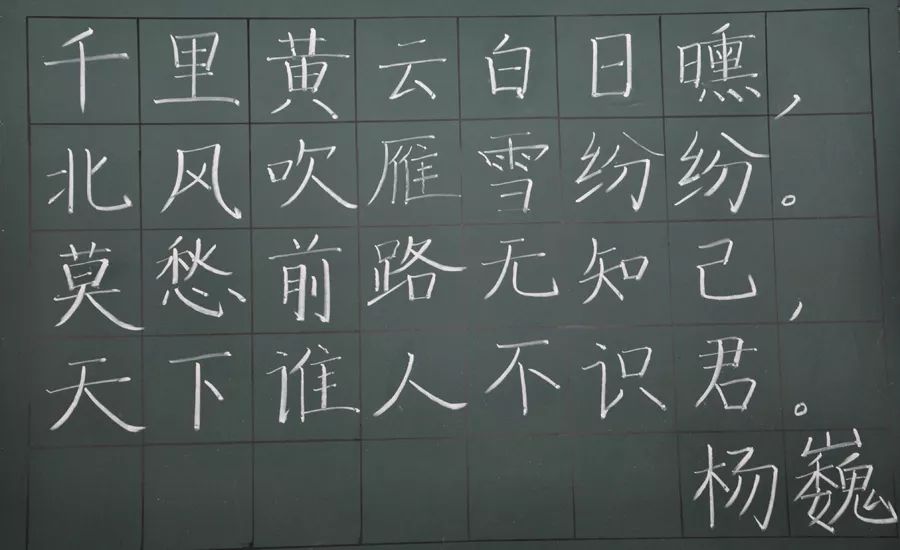 千里黄云白日曛，
北风吹雁雪纷纷。
莫愁前路无知己，
天下谁人不识君。
杨巍